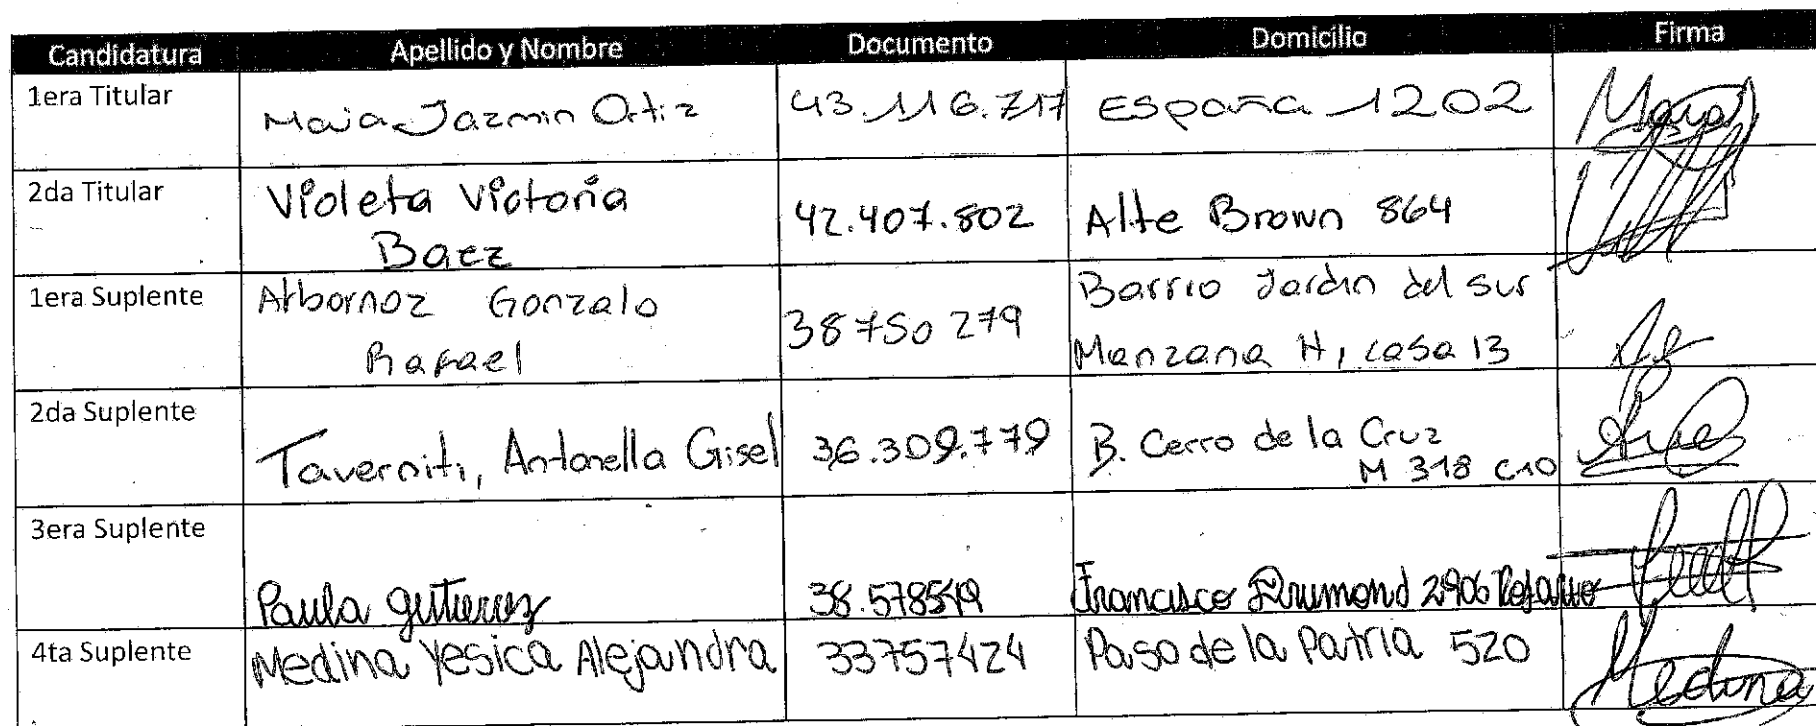 Candidatura Apellido y Nombre Documento Domicilio Firma
1era Titular Maia Jazmin Ortiz 43.116.717 España 1202
2da Titular Violeta Victoria Baez 42.407.802 Alte Brown 864
1era Suplente Albornoz Gonzalo Rafael 38750279 Barrio Jardin del sur Manzana H, casa 13
2da Suplente Taverniti, Antonella Gisel 36.309.779 B. Cerro de la Cruz M 318 C10
3era Suplente Paula gutierrez 38.578519 Francisco Drumond 2906 Rosario
4ta Suplente Medina Yesica Alejandra 33757424 Paso de la Patria 520 Medina